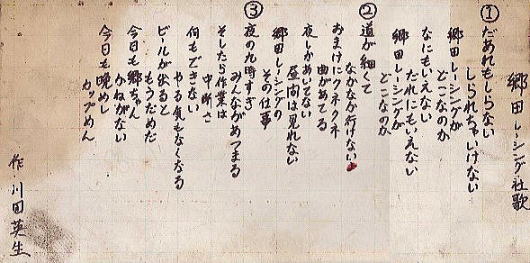 郷田レーシング社歌
①だあれもしらない
しられちゃいけない
郷田レーシングが
どこなのか
なにもいえない
だれにもいえない
郷田レーシングが
どこなのか
②道が細くて
なかなか行けない
おまけにクネクネ
曲があてる
夜しかあいてない
昼間は見れない
郷田レーシングの
その仕事
③夜の九時すぎ
みんながあつまる
そしたら作業は
中断さ
何もできない
やる気もなくなる
ビールが出ると
もうだめだ
今日も郷ちゃん
かねがない
今日も晩めし
カップめん
作 川田英生